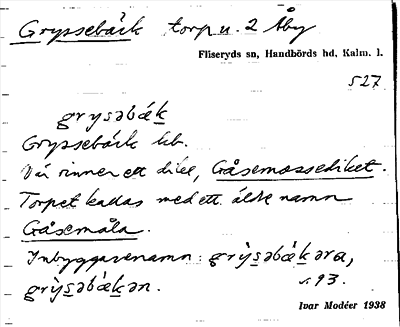 Gryssebäck torp u. 2 Åby
Fliseryds sn, Handbörds hd, Kalm. l.
527
grysəbǽk
Gryssebäck lib.
Där rinner ett dike, Gåsemossediket.
Torpet kallas med ett äldre namn
Gåsemåla.
Inbyggarenamn: grỳsəbǽkəra,
grỳsəbǽkən. s. 93.
Ivar Modéer 1938